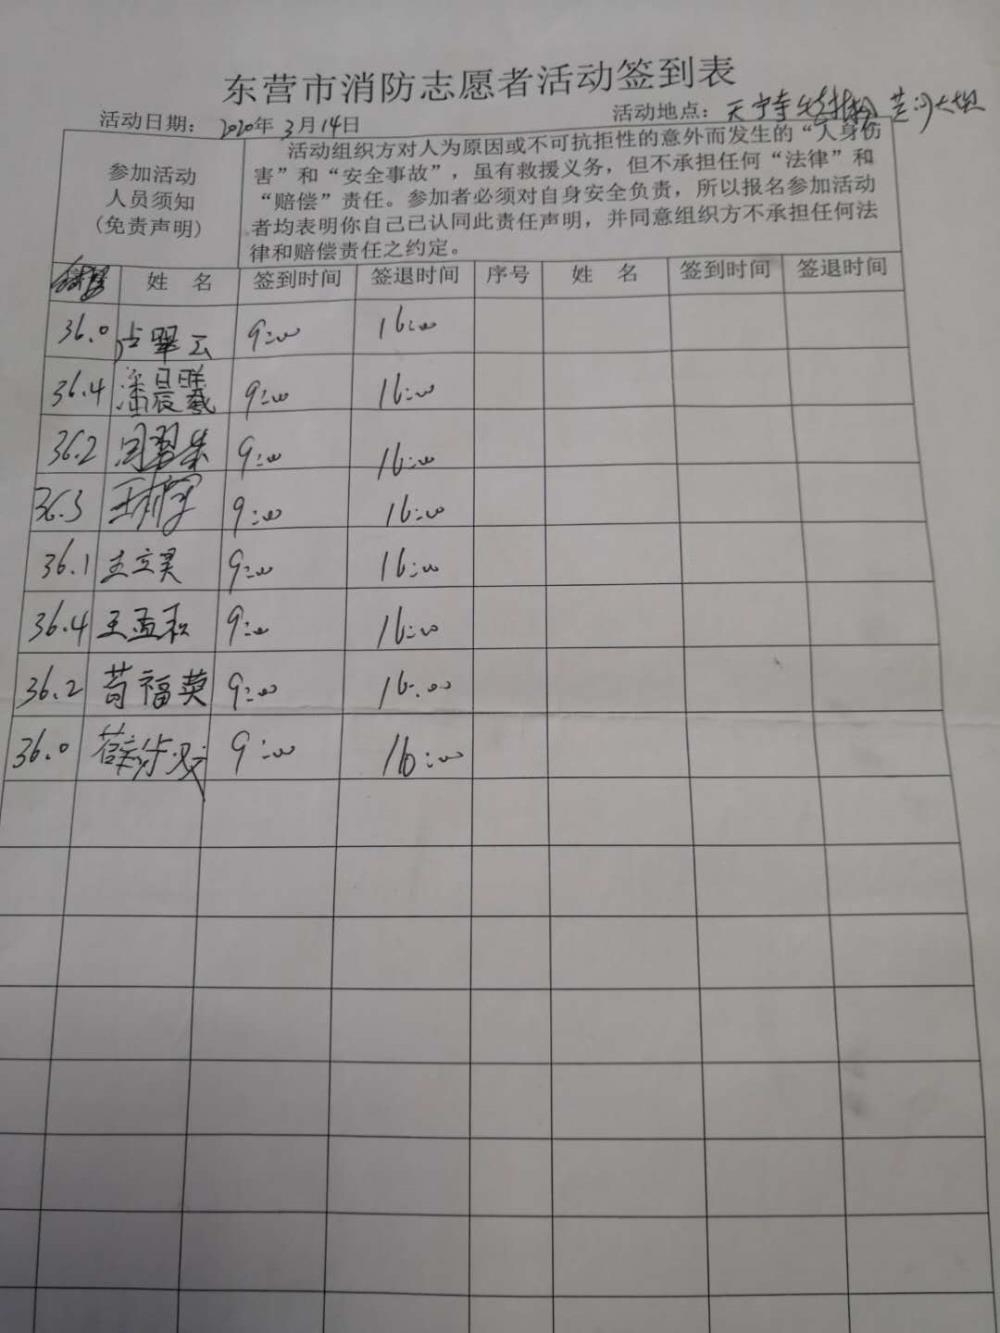 东营市消防志愿者活动签到表
活动日期： 2020年 3月14日 活动地点：天宁寺 黄河大坝
参加活动
人员须知
(免责声明)
活动组织方对人为原因或不可抗拒性的意外而发生的“人身伤
害”和“安全事故”，虽有救援义务，但不承担任何“法律”和
“赔偿”责任。参加者必须对自身安全负责，所以报名参加活动
者均表明你自己已认同此责任声明，并同意组织方不承担任何法
律和赔偿责任之约定。
姓 名 签到时间 签退时间 序号 姓 名 签到时间 签退时间
36.0 占翠云 9:00 16:00
36.4 潘晨曦 9:00 16:00
36.2 9:00 16:00
36.3 9:00 16:00
36.1 王立昊 9:00 16:00
36.4 王孟和 9:00 16:00
36.2 苟福英 9:00 16:00
36.0 9:00 16:00